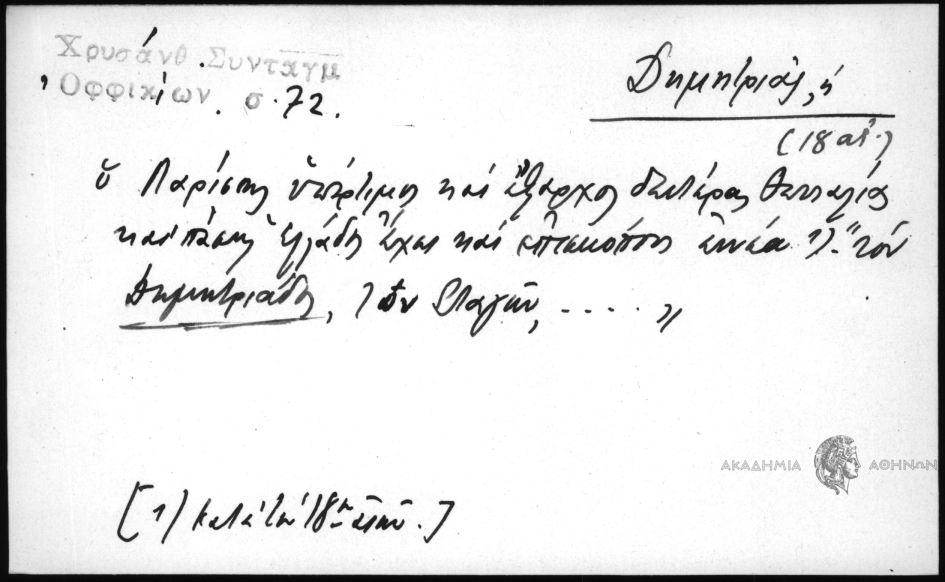 Χρυσάνθ. Συνταγμ
Ὀφφικίων. σ. 72.
Δημητριάς, ἡ
(18 αἰ.)
ὁ Λαρίσης ὑπέρτιμος καὶ ἔξαρχος δευτέρας Θετταλίας
καὶ πάσης Ἑλλάδος ἔχει καὶ ἐπισκοπὰς ἐννέα 1). "τὸν
Δημητριάδος, τὸν Σταγῶν, .... "
ΑΚΑΔΗΜΙΑ ΑΘΗΝΩΝ
[1) κατὰ τὸν 18ον αἰῶνα.]